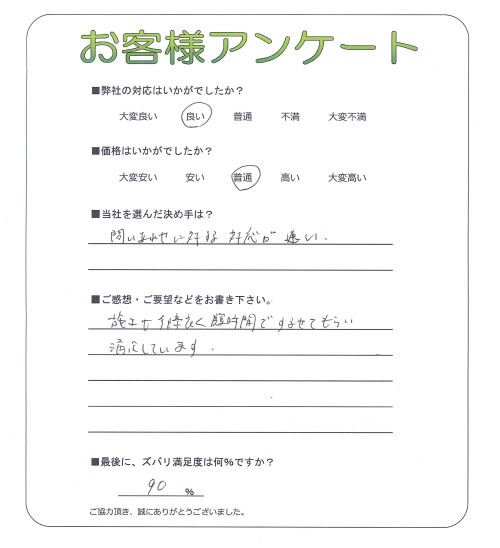 お客様アンケート
■弊社の対応はいかがでしたか？
大変良い 良い 普通 不満 大変不満
■価格はいかがでしたか？
大変安い 安い 普通 高い 大変高い
■当社を選んだ決め手は？
問い合わせに対する 対応が 速い．
■ご感想・ご要望などをお書き下さい。
施工も手際良く 短時間ですませてもらい
満足しています．
■最後に、ズバリ満足度は何％ですか？
90 ％
ご協力頂き、誠にありがとうございました。